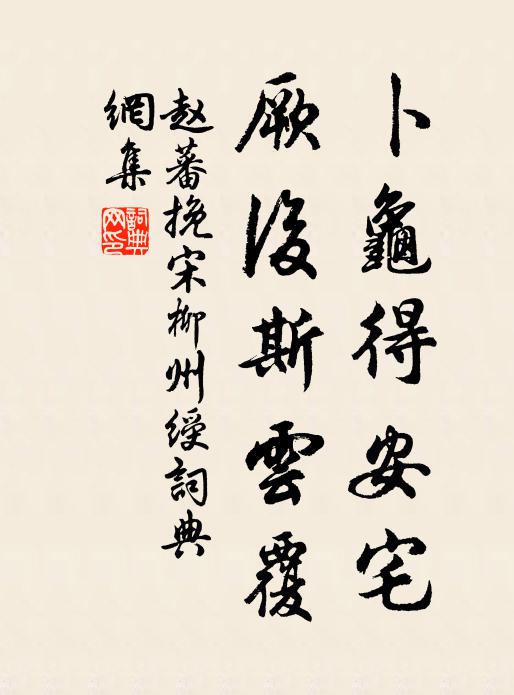 卜龜得安宅
厥後斯雲覆
赵蕃挽宋柳州綬詞典
網集
詞典网印